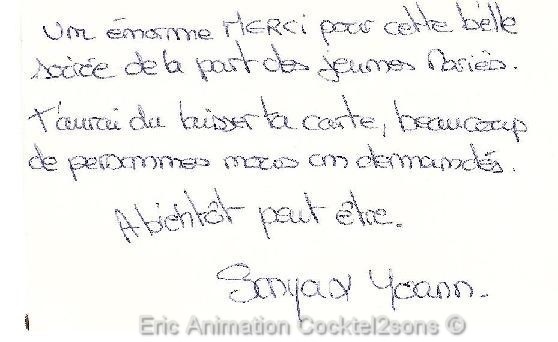 Un énorme MERCI pour cette belle
soirée de la part des jeunes Mariés.
T'aurai du laisser ta carte, beaucoup
de personnes nous on demandés.
A bientôt peut être.
Sonya et Yoann.
Eric Animation Cocktel2sons ©